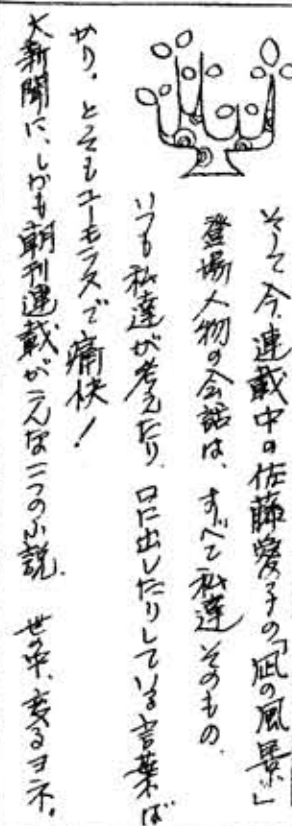 そして今、連載中の佐藤愛子の「凪の風景」
登場人物の会話は、すべて私達そのもの。
いつも私達が考えたり、口に出したりしている言葉ば
かり。とってもユーモラスで痛快！
大新聞に、しかも朝刊連載がこんな二つの小説。世の中、変るヨネ。